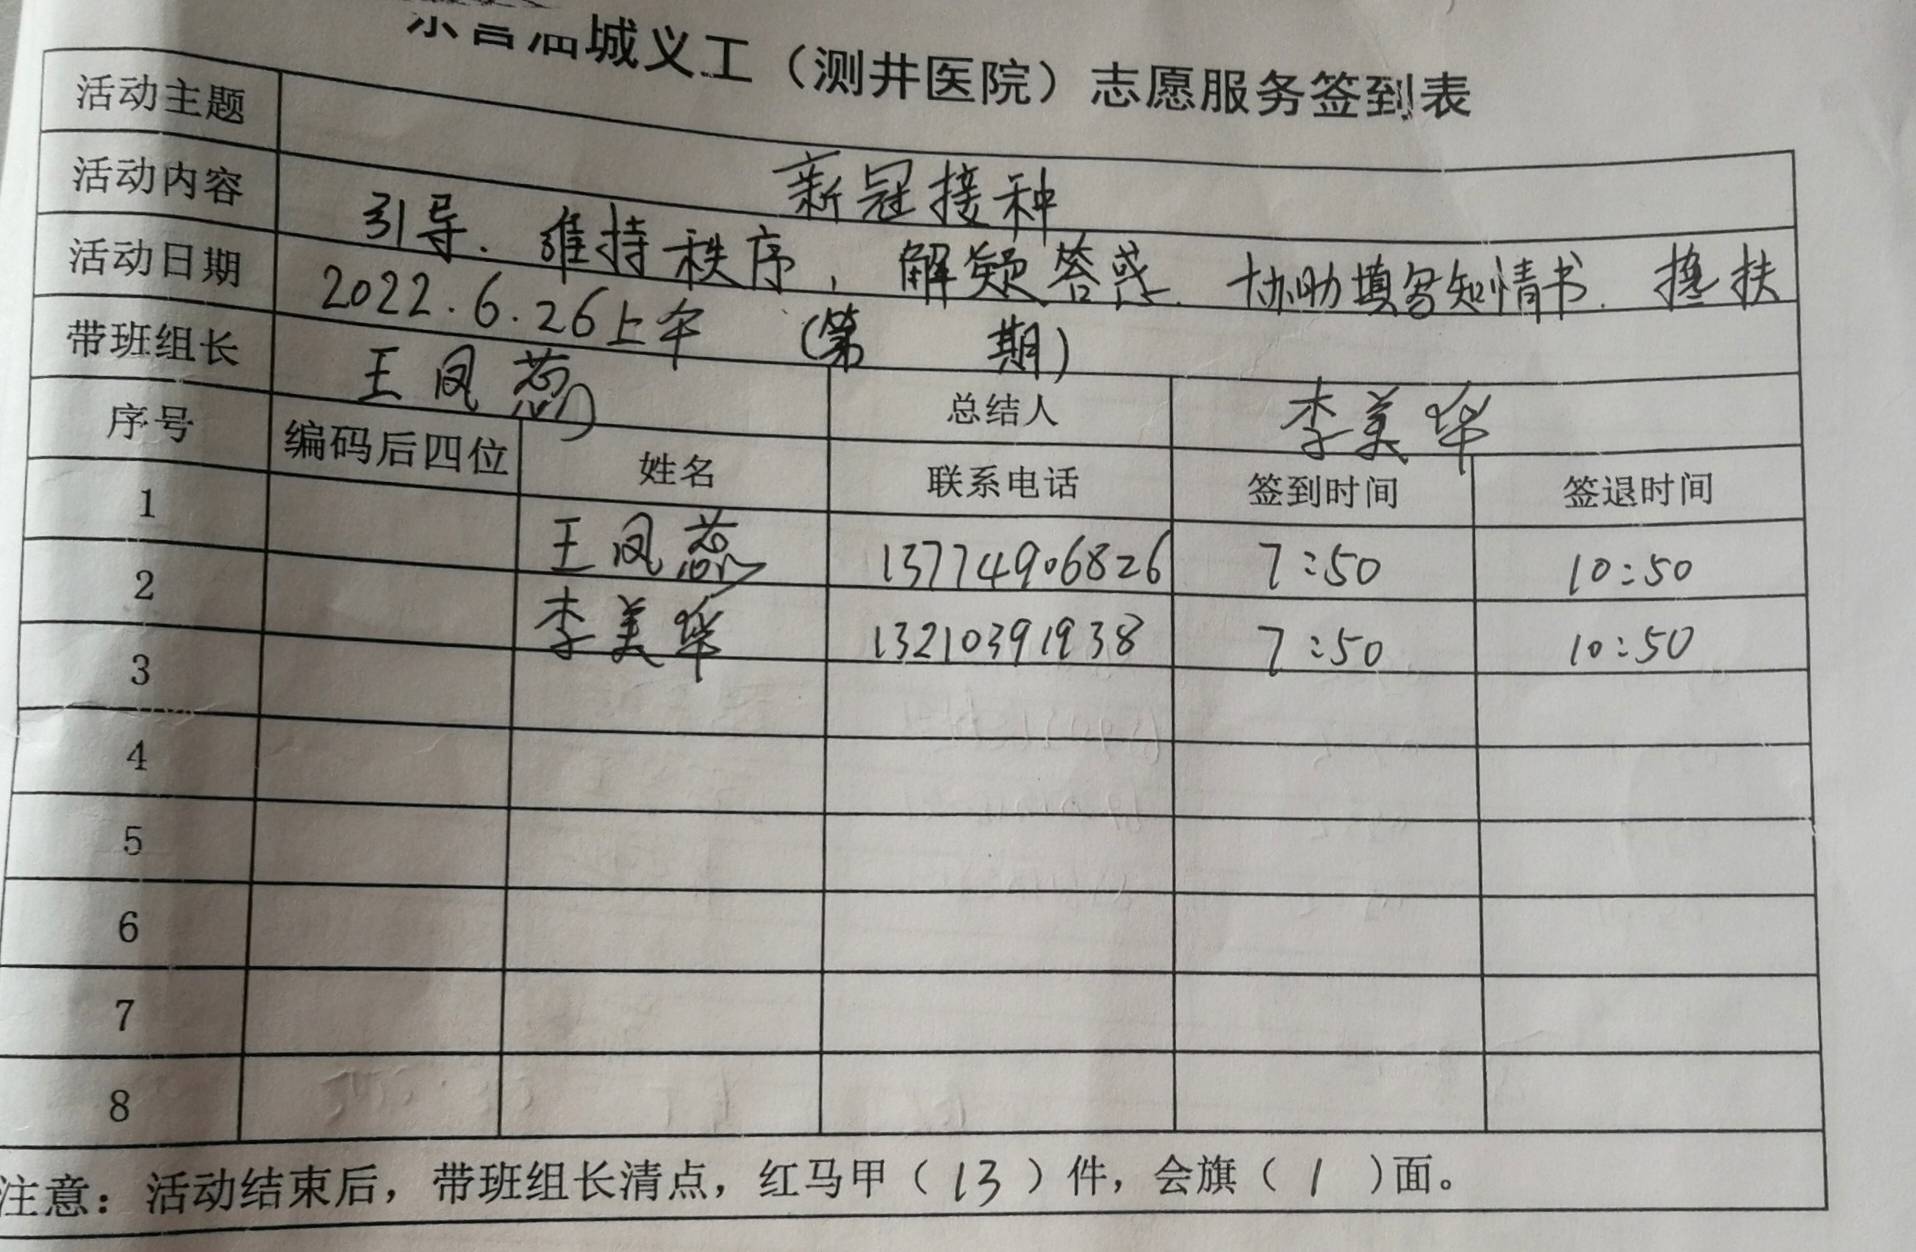 城义工（测井医院）志愿服务签到表
活动主题 新冠接种
活动内容 引导．维持秩序，解疑答惑．协助填写知情书．搀扶
活动日期 2022.6.26上午 (第 期)
带班组长 王凤蕊 总结人 李美华
序号 编码后四位 姓名 联系电话 签到时间 签退时间
1 王凤蕊 13774906826 7:50 10:50
2 李美华 13210391938 7:50 10:50
3
4
5
6
7
8
注意：活动结束后，带班组长清点，红马甲（13）件，会旗（1）面。